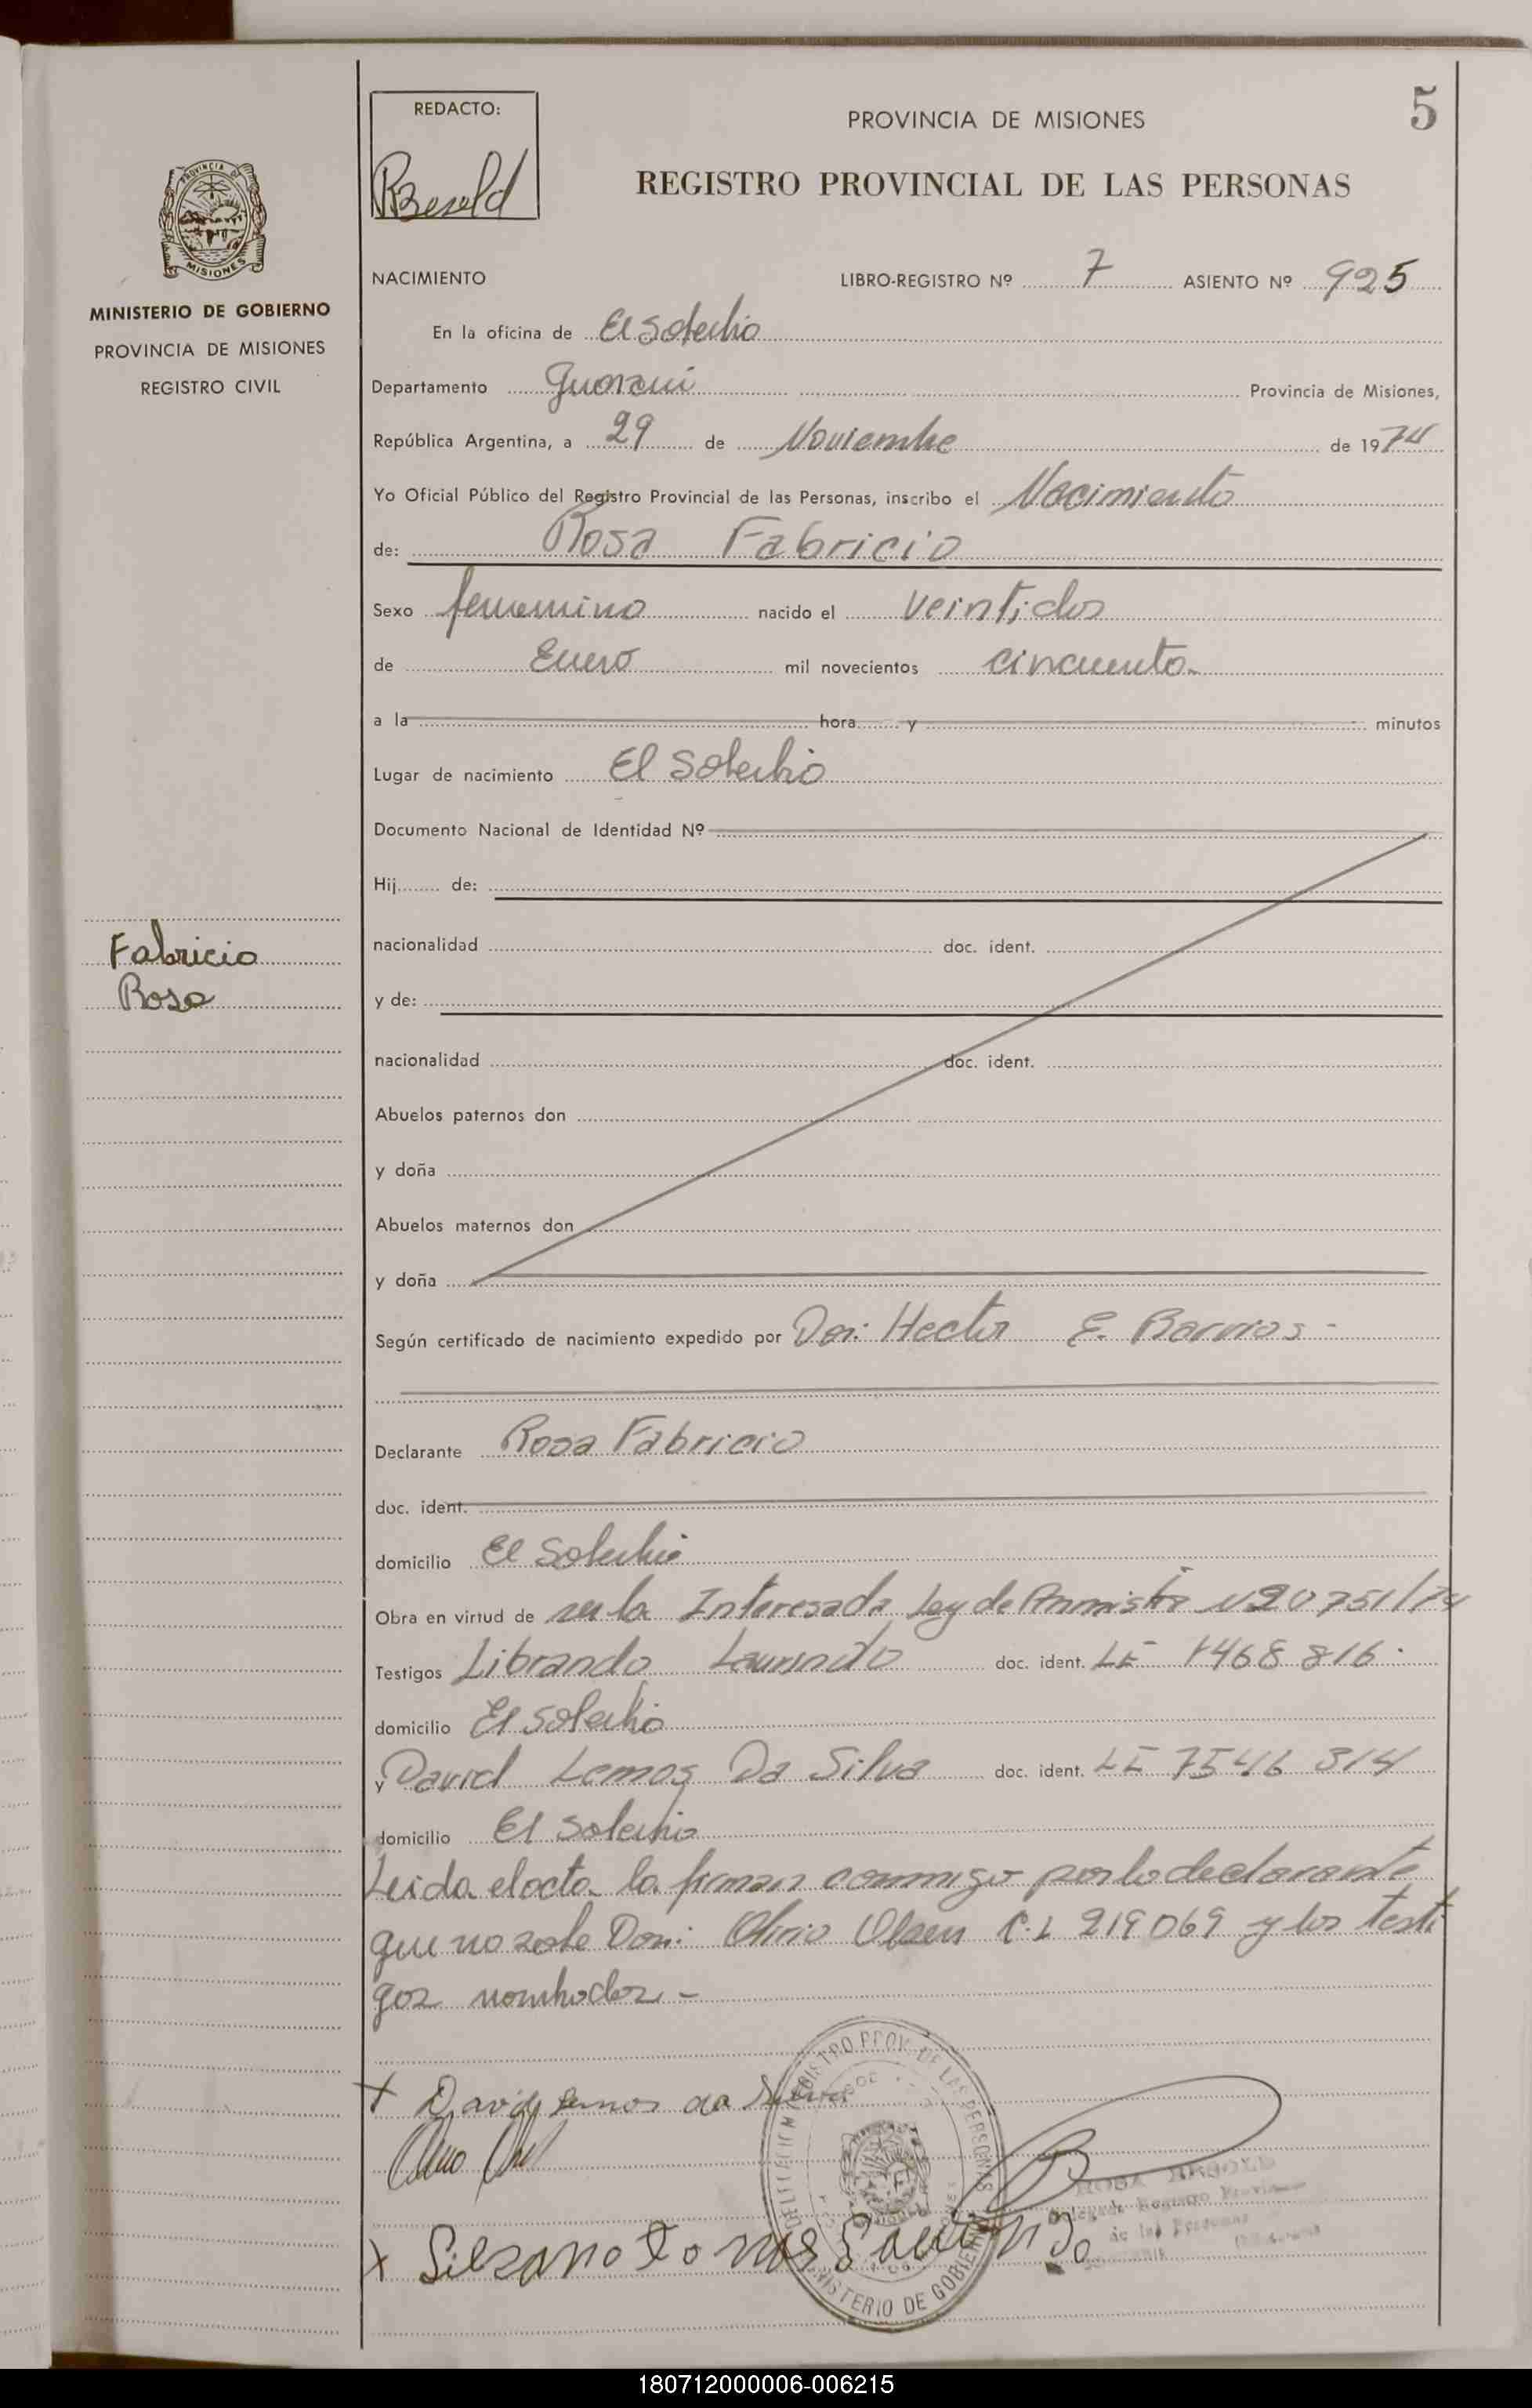 5
REDACTO:
PROVINCIA DE MISIONES
REGISTRO PROVINCIAL DE LAS PERSONAS
PROVINCIA DE
MISIONES
MINISTERIO DE GOBIERNO
PROVINCIA DE MISIONES
REGISTRO CIVIL
NACIMIENTO LIBRO-REGISTRO Nº 7 ASIENTO Nº 925
En la oficina de El Soberbio
Departamento Guarani Provincia de Misiones,
República Argentina, a 29 de Noviembre de 1974
Yo Oficial Público del Registro Provincial de las Personas, inscribo el Nacimiento
de: Rosa Fabricio
Sexo femenino nacido el veintidos
de Enero mil novecientos cincuenta.
a la hora y minutos
Lugar de nacimiento El Soberbio
Documento Nacional de Identidad Nº
Hij de:
Fabricio
Rosa
nacionalidad doc. ident.
y de:
nacionalidad doc. ident.
Abuelos paternos don
y doña
Abuelos maternos don
y doña
Según certificado de nacimiento expedido por Don: Hector E. Barrios -
Declarante Rosa Fabricio
doc. ident.
domicilio El Soberbio
Obra en virtud de ser la Interesada Ley de Amnistia Nº 20751/74
Testigos Librando Laurindo doc. ident. LE 7468 816.
domicilio El Soberbio
y David Lemos Da Silva doc. ident. LE 7546 314
domicilio El Soberbio
Leida el acta la firman conmigo por la declarante
que no sabe Don: Olirio Olsen C.I 219069 y los testi
gos nombrados. -
X David Lemos da Silva
X
REGISTRO PROV. DE LAS PERSONAS
MINISTERIO DE GOBIERNO
de las Personas
180712000006-006215